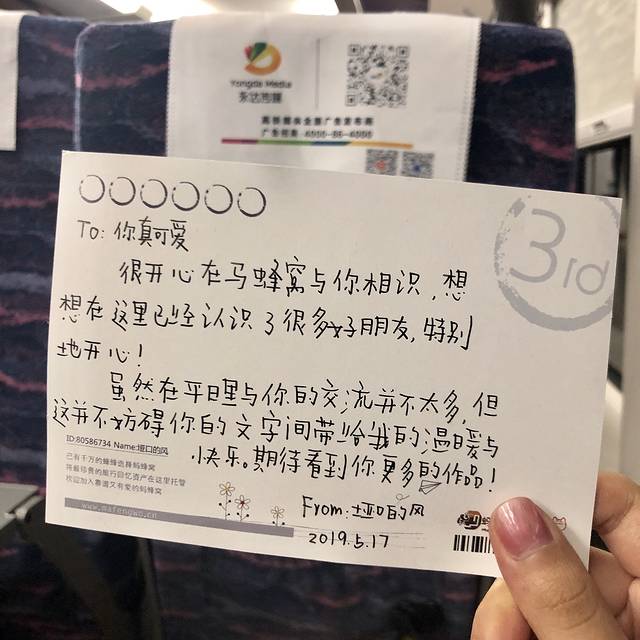 Yongda Media
永达传媒
高铁媒体全国广告发布商
广告招商:4000-06-4000
3rd
To: 你真可爱
很开心在马蜂窝与你相识,想
想在这里已经认识了很多好朋友,特别
地开心!
虽然在平日里与你的交流并不太多,但
这并不妨碍你的文字间带给我的温暖与
快乐。期待看到你更多的作品!
ID:80586734 Name:垭口的风
已有千万的蜂蜂选择蚂蜂窝
将最珍贵的旅行回忆资产在这里托管
欢迎加入靠谱又有爱的蚂蜂窝
www.mafengwo.cn
From:垭口的风
2019.5.17